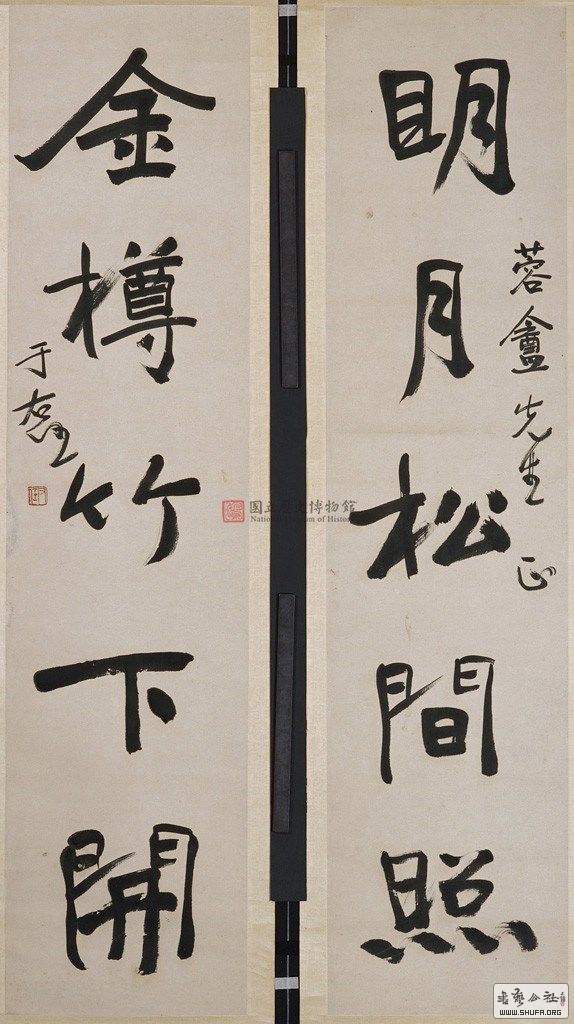 明月松間照
蓉盦先生正
金樽竹下開
于右任
国立历史博物館
National Museum of History
書藝公社
WWW.SHUFA.ORG